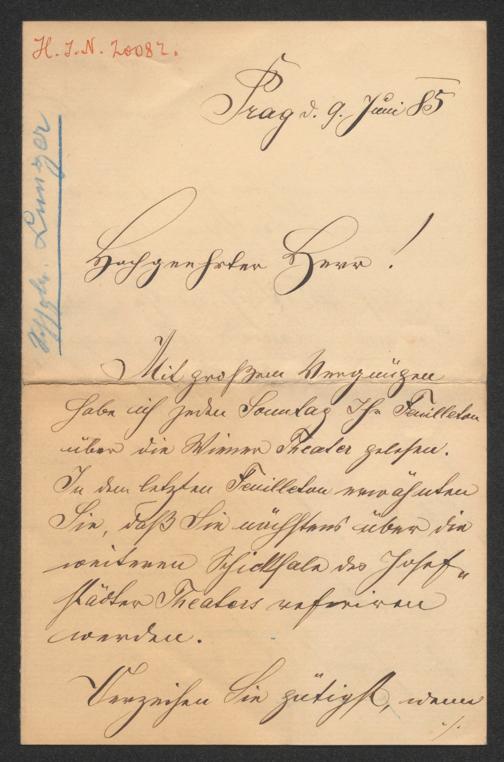 H. I. N. 20082.
Prag d. 9. Juni 85
Lunzer
Hochgeehrter Herr!
Mit großem Vergnügen
habe ich jeden Sonntag Ihr Feuilleton
über die Wiener Theater gelesen.
In dem letzten Feuilleton erwähnten
Sie, daß Sie nächstens über die
weiteren Schicksale des Josef-
städter Theaters referiren
werden.
Verzeihen Sie gütigst, wenn
./.